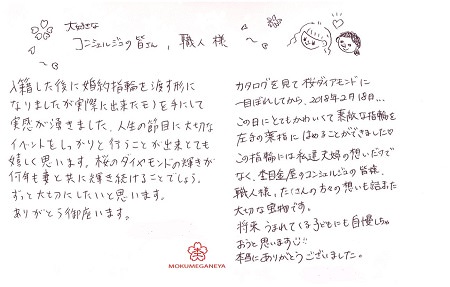 大好きな
コンシェルジュの皆さん、職人様
入籍した後に婚約指輪を渡す形に
なりましたが実際に出来たモノを手にして
実感が湧きました、人生の節目に大切な
イベントをしっかりと行うことが出来とても
嬉しく思います。桜のダイヤモンドの輝きが
何年も妻と共に輝き続けることでしょう。
ずっと大切にしたいと思います。
ありがとう御座います。
カタログを見て桜ダイアモンドに
一目ぼれしてから、2018年2月18日...
この日にとてもかわいくて素敵な指輪を
左手の薬指にはめることができました♡
この指輪には私達夫婦の想いだけで
なく、杢目金屋のコンシェルジュの皆様、
職人様、たくさんの方々の想いも詰また
大切な宝物です。
将来うまれてくる子どもにも自慢しちゃ
おうと思います☺!!
本当にありがとうございました。
MOKUMEGANEYA